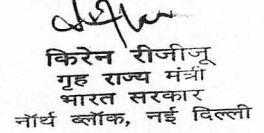 किरेन रीजीजू
गृह राज्य मंत्री
भारत सरकार
नॉर्थ ब्लॉक, नई दिल्ली